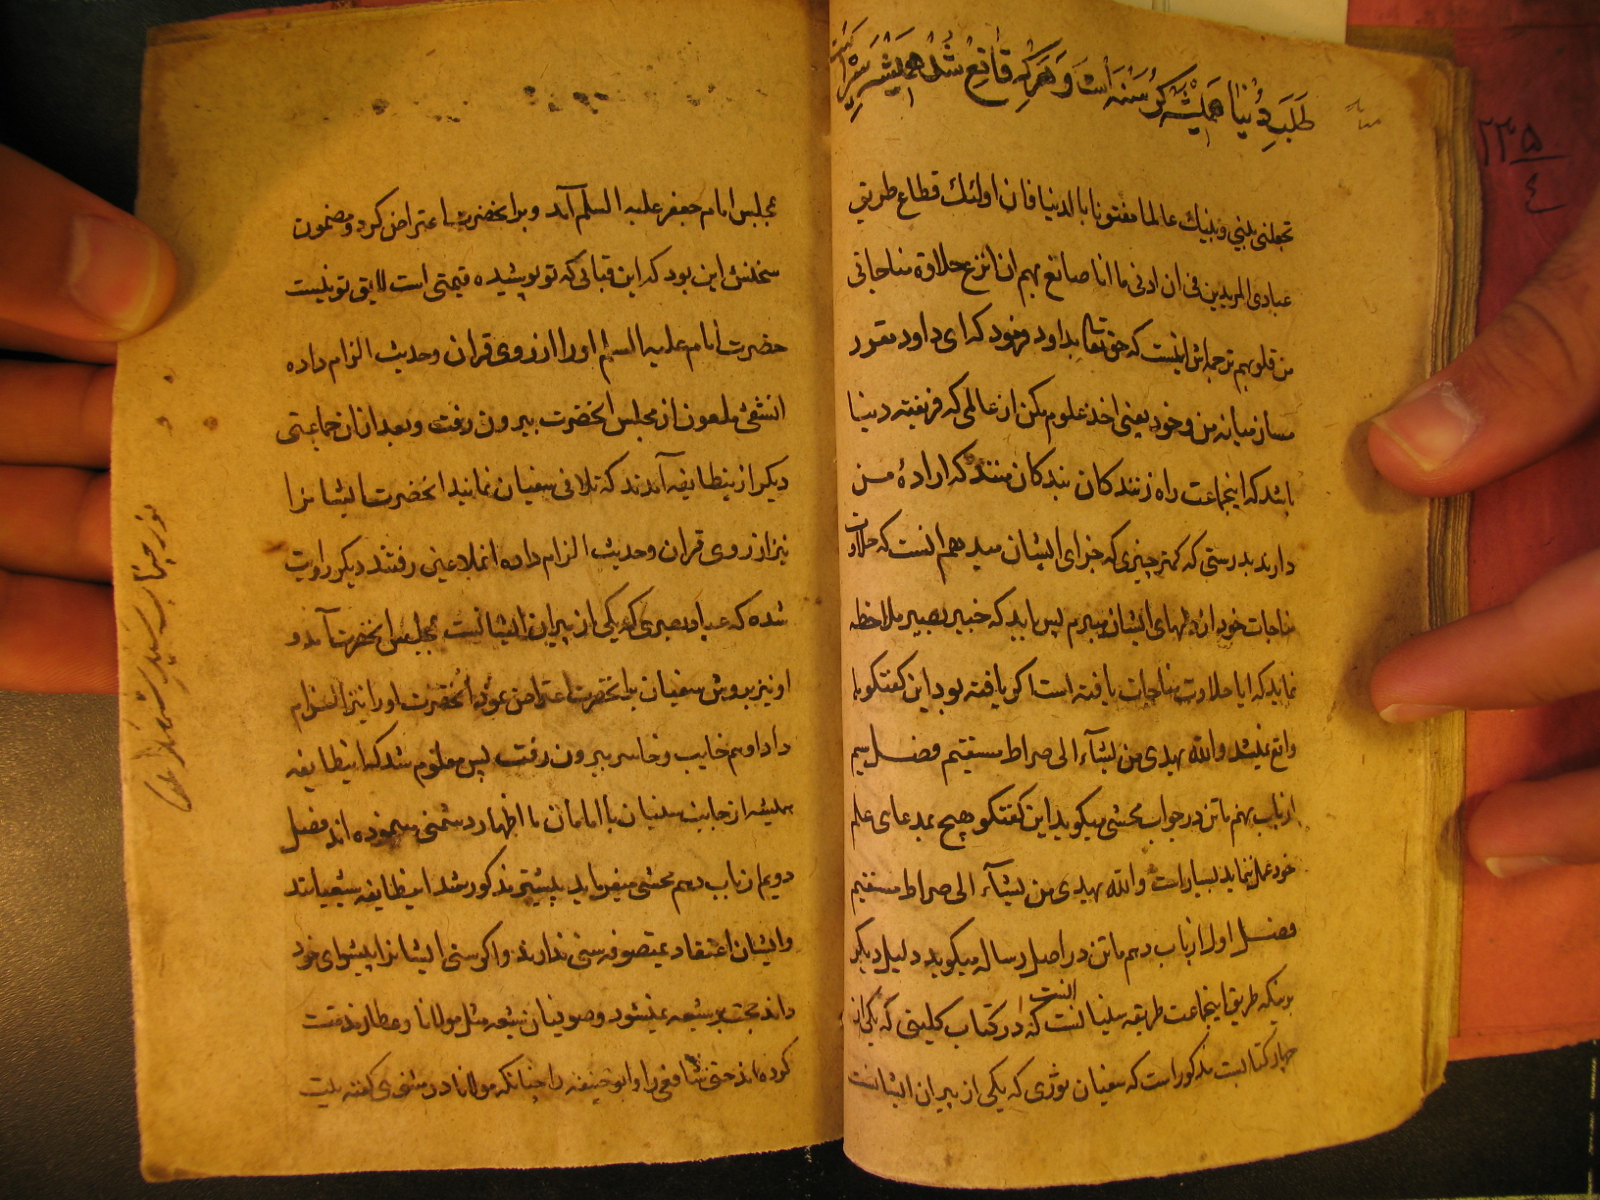 طلب دنیا همیشه گرسنه است و هر که قانع شد همیشه سیر است
۲۳۵
۴
تجعلنی بینی وبینك عالما مفتونا بالدنیا فان اولئك قطاع طریق
عبادی المریدین فی ان ادنی ما انا صانع بهم ان انزع حلاوة مناجاتی
من قلوبهم ترجمه اش اینست که حق تعا بداود فرمود که ای داود مقرر
مساز میانه من و خود یعنی اخذ علوم مکن از عالمی که فریفته دنیا
باشد که اینجماعت راه زنندکان بندکان منند که اراده من
دارند بدرستی که کمتر چیزی که جزای ایشان میدهم انست که حلاوت
مناجات خود از دلهای ایشان میبرم پس باید که خبیر بصیر ملاحظه
نماید که ایا حلاوت مناجات یافته است اکر یافته بود این کفتکوها
واقع نمیشد والله یهدی من یشآء الی صراط مستقیم فصل سیم
از باب نهم ماتن در جواب محشی میکوید این کفتکو هیچ بمدعای علم
خود عمل ننماید بسیار است والله یهدی من یشآء الی صراط مستقیم
فصل اول از باب دهم ماتن در اصل رساله میکوید دلیل دیکر
برینکه طریق اینجماعت طریقه سنیانست انست که در کتاب کلینی که یکی از
چهار کتابست مذکور است که سفیان ثوری که یکی از پیران ایشانست
بمجلس امام جعفر علیه السلم آمد و برانحضرت اعتراض کرد و مضمون
سخنش این بود که این قبائی که تو پوشیده قیمتی است لایق تو نیست
حضرت امام علیه السلم او را از روی قران وحدیث الزام داده
انشقی ملعون از مجلس انحضرت بیرون رفت و بعد از ان جماعتی
دیکر از ینطایفه آمدند که تلافی سفیان نمایند انحضرت ایشانرا
نیز از روی قران وحدیث الزام داده انملاعین رفتند دیکر روایت
شده که عباد بصری که یکی از پیران ایشانست بمجلس انحضرت آمد و
او نیز بروش سفیان برانحضرت اعتراض نموده انحضرت اورا نیز الزام
داد او هم خایب و خاسر بیرون رفت پس معلوم شد که اینطایفه
همیشه از جانب سنیان با امامان ما اظهار دشمنی مینموده اند فصل
دویم از باب دهم محشی میفرماید پیشتر مذکور شد اینطایفه شیعیانند
وایشان اعتقاد بمتصوفه سنی ندارند واکر سنی ایشانرا پیشوای خود
داند حجت بر شیعه نمیشود وصوفیان شیعه مثل مولانا وعطار مذمت
کرده اند حتی شافعی را وابو حنیفه را چنانکه مولانا در مثنوی کفته بیت